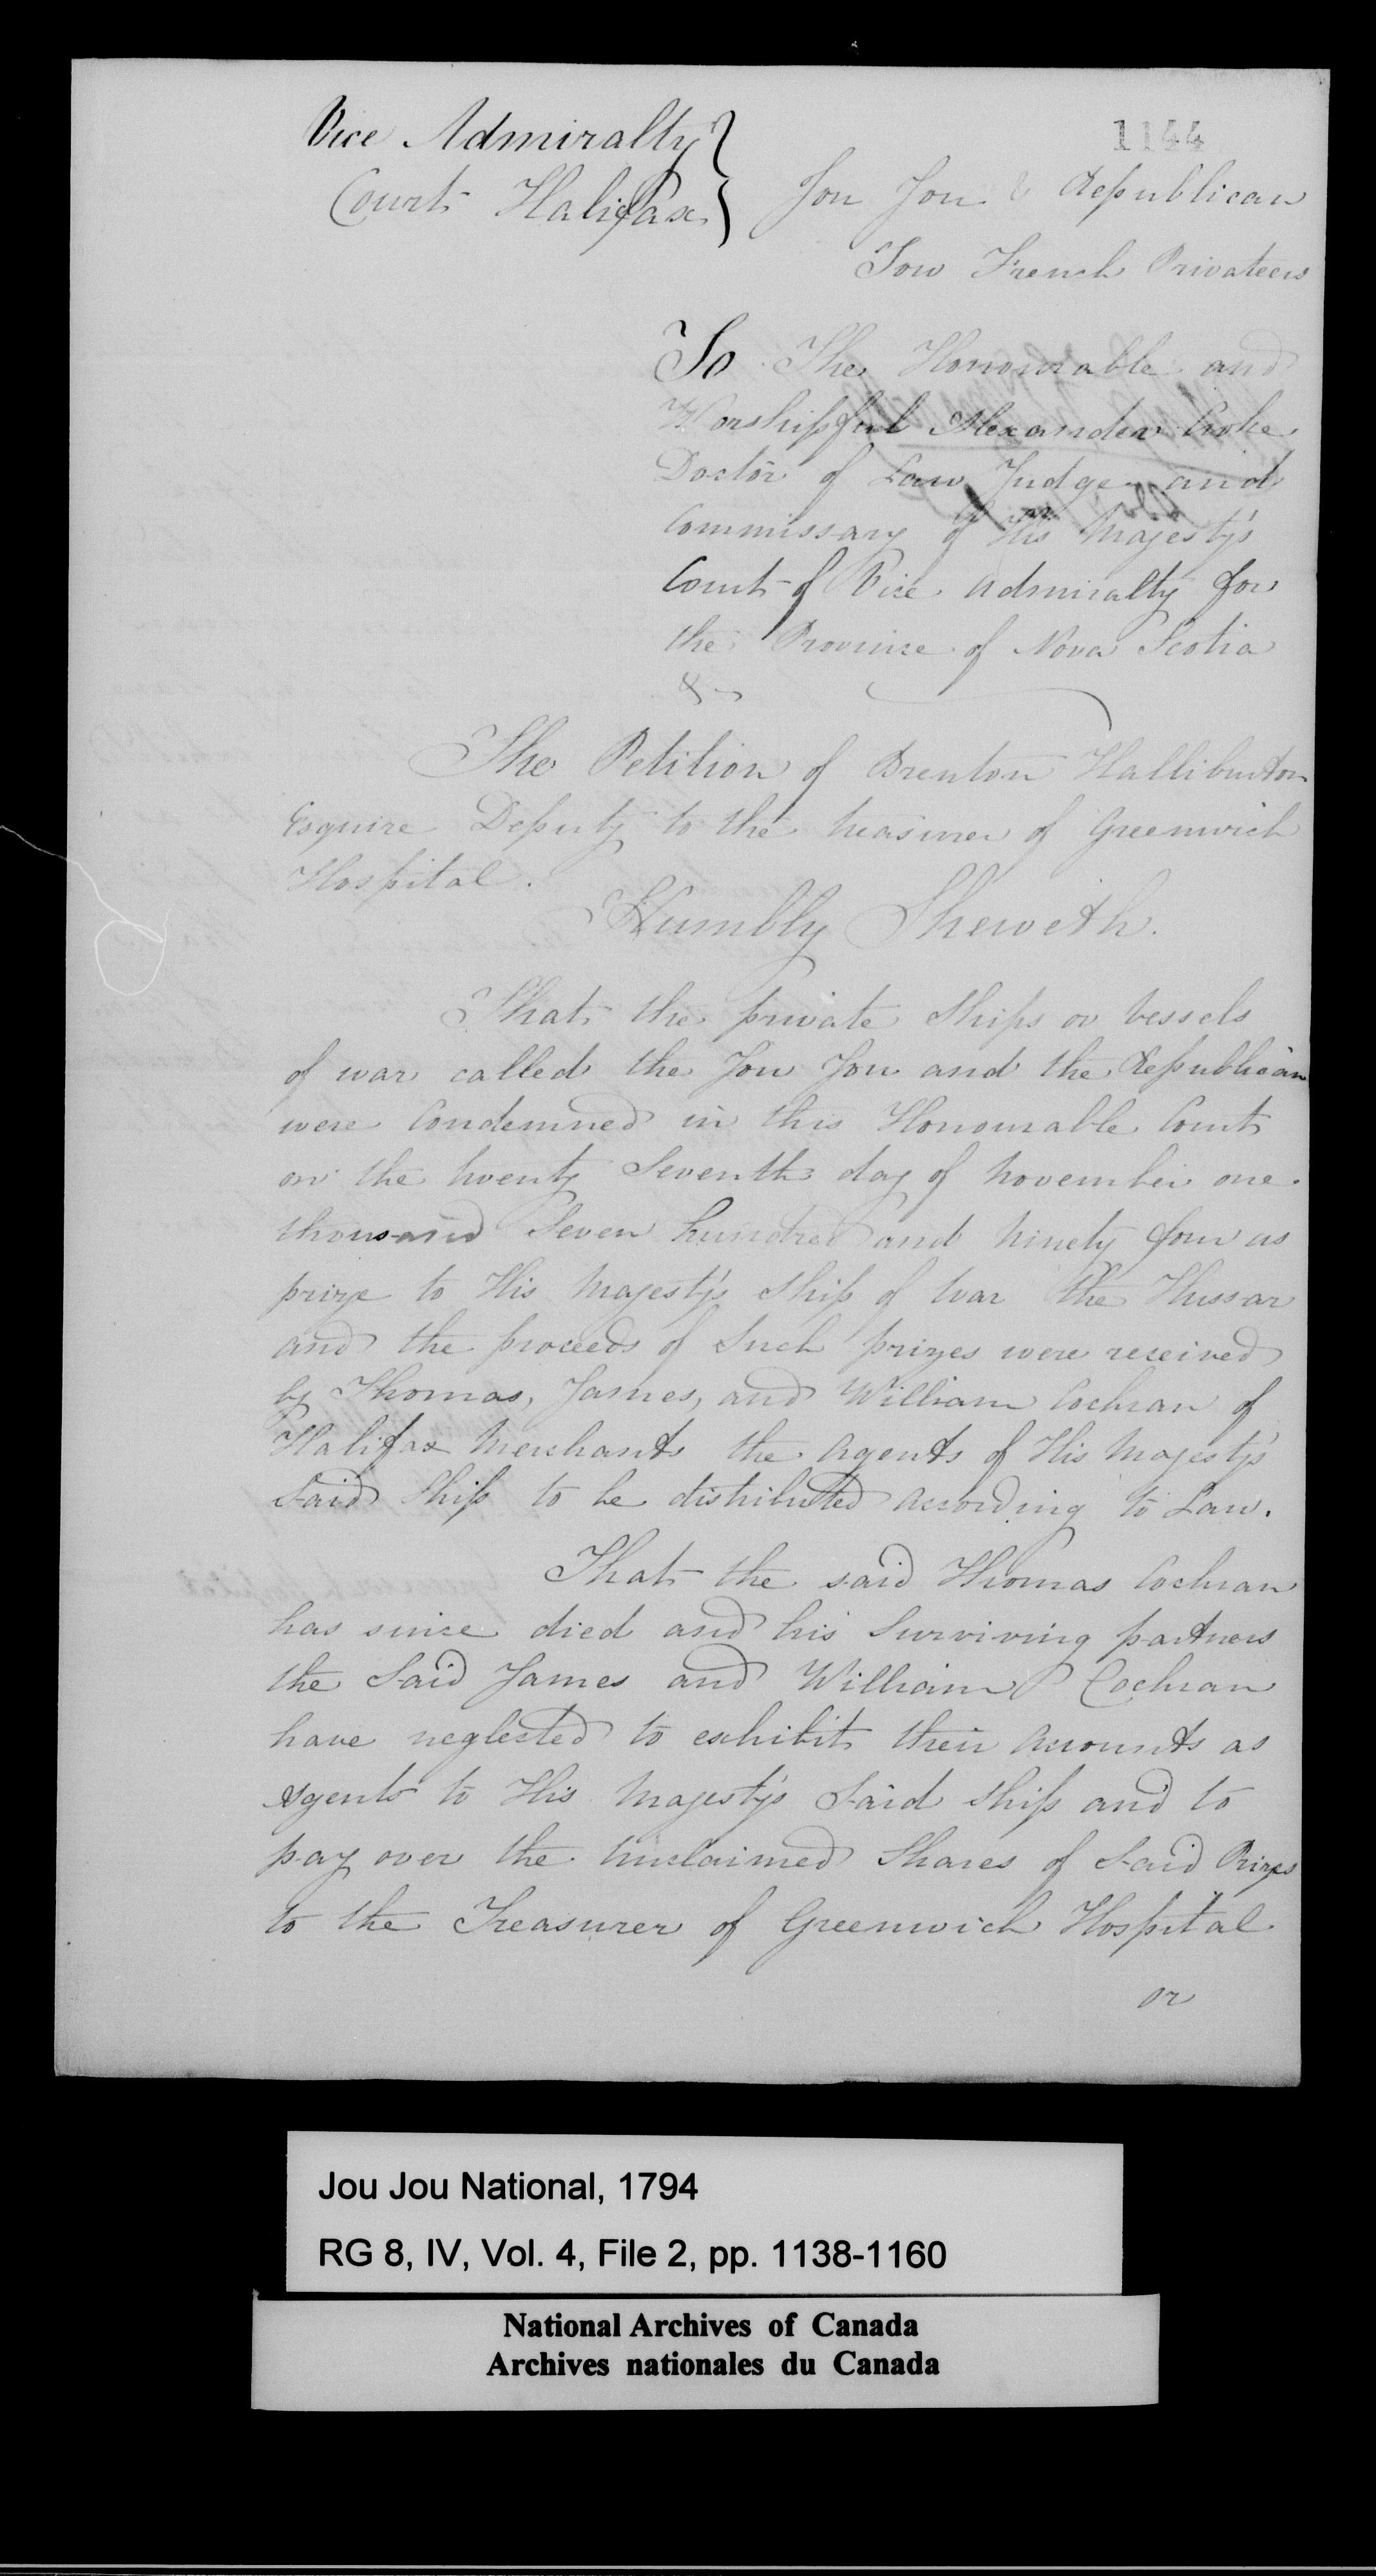 1144
Vice Admiralty
Court Halifax
Jou Jou & Republican
Tow French Privateers
To The Honourable and
Worshipful Alexander Croke
Doctor of Law Judge and
Commissary of His Majesty's
Court of Vice Admiralty for
the Province of Nova Scotia
&c
The Petition of Brenton Halliburton
Esquire Deputy to the treasurer of Greenwich
Hospital.
Humbly Sheweth.
That the private Ships or Vessels
of war called the Jou Jou and the Republican
were Condemned in this Honourable Court
on the twenty Seventh day of November one
thousand Seven hundred and Ninety four as
prize to His Majesty's Ship of War the Hussar
and the proceeds of Such prizes were received
by Thomas, James, and William Cochran of
Halifax Merchants the Agents of His Majesty's
Said Ship to be distributed According to Law.
That the said Thomas Cochran
has since died and his Surviving partners
the Said James and William Cochran
have neglected to exhibit their Accounts as
Agents to His Majesty's Said Ship and to
pay over the Unclaimed Shares of Said Prizes
to the Treasurer of Greenwich Hospital
or
Jou Jou National, 1794
RG 8, IV, Vol. 4, File 2, pp. 1138-1160
National Archives of Canada
Archives nationales du Canada